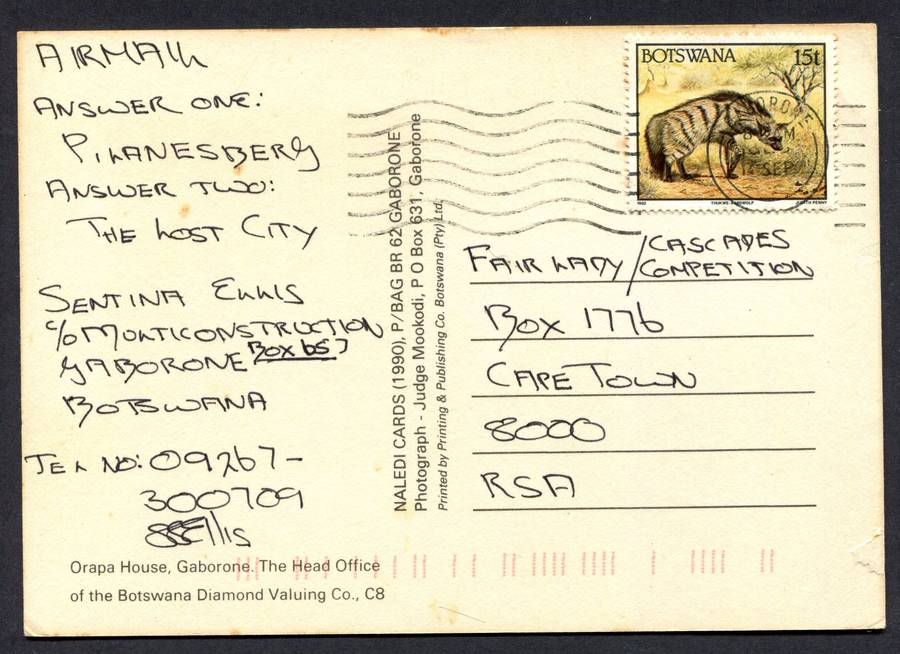 AIRMAIL
ANSWER ONE:
PILANESBERG
ANSWER TWO:
THE LOST CITY
SENTINA ELLIS
c/o MULTICONSTRUCTION
GABORONE BOX 657
BOTSWANA
TEL NO: 09267-
300709
Ellis
Orapa House, Gaborone. The Head Office
of the Botswana Diamond Valuing Co., C8
NALEDI CARDS (1990), P/BAG BR 62 GABORONE
Photograph - Judge Mookodi, P O Box 631, Gaborone
Printed by Printing & Publishing Co. Botswana (Pty) Ltd.
BOTSWANA 15t
1992 THUKWE-AARDWOLF JUDITH PENNY
GABORONE
SEP
FAIR LADY/CASCADES
COMPETITION
BOX 1776
CAPE TOWN
8000
RSA